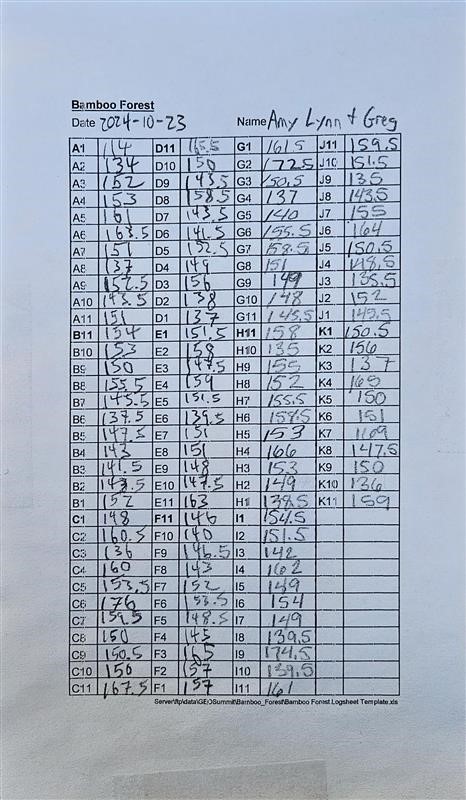 Bamboo Forest
Date 2024-10-23 Name Amy Lynn + Greg
A1 114 D11 165.5 G1 161.5 J11 159.5
A2 134 D10 150 G2 172.5 J10 151.5
A3 152 D9 143.5 G3 150.5 J9 135
A4 153 D8 158.5 G4 137 J8 143.5
A5 161 D7 143.5 G5 140 J7 155
A6 163.5 D6 141.5 G6 155.5 J6 164
A7 151 D5 152.5 G7 158.5 J5 150.5
A8 137 D4 149 G8 151 J4 148.5
A9 152.5 D3 156 G9 149 J3 135.5
A10 143.5 D2 138 G10 148 J2 152
A11 151 D1 137 G11 143.5 J1 149.5
B11 154 E1 151.5 H11 158 K1 150.5
B10 153 E2 158 H10 135 K2 156
B9 150 E3 147.5 H9 155 K3 137
B8 155.5 E4 159 H8 152 K4
B7 145.5 E5 151.5 H7 155.5 K5 150
B6 137.5 E6 139.5 H6 158.5 K6 151
B5 147.5 E7 151 H5 153 K7 169
B4 143 E8 151 H4 166 K8 147.5
B3 141.5 E9 148 H3 153 K9 150
B2 E10 147.5 H2 149 K10 136
B1 152 E11 163 H1 138.5 K11 159
C1 148 F11 146 I1 154.5
C2 160.5 F10 140 I2 151.5
C3 136 F9 146.5 I3 142
C4 160 F8 143 I4 162
C5 153.5 F7 152 I5 149
C6 176 F6 153.5 I6 154
C7 159.5 F5 148.5 I7 149
C8 150 F4 145 I8 139.5
C9 150.5 F3 165 I9 174.5
C10 150 F2 157 I10 139.5
C11 167.5 F1 157 I11 161
Server\ftp\data\GEOSummit\Bamboo_Forest\Bamboo Forest Logsheet Template.xls